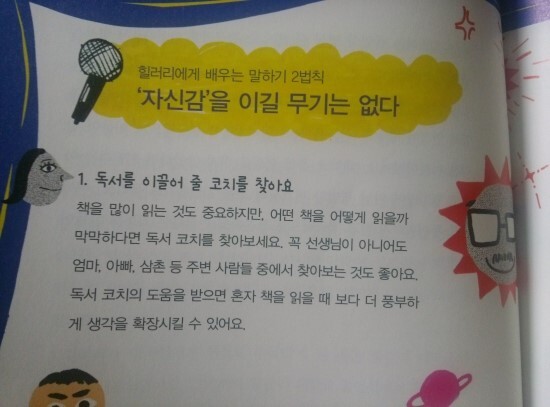 힐러리에게 배우는 말하기 2법칙
‘자신감’을 이길 무기는 없다
1. 독서를 이끌어 줄 코치를 찾아요
책을 많이 읽는 것도 중요하지만, 어떤 책을 어떻게 읽을까
막막하다면 독서 코치를 찾아보세요. 꼭 선생님이 아니어도
엄마, 아빠, 삼촌 등 주변 사람들 중에서 찾아보는 것도 좋아요.
독서 코치의 도움을 받으면 혼자 책을 읽을 때 보다 더 풍부하
게 생각을 확장시킬 수 있어요.